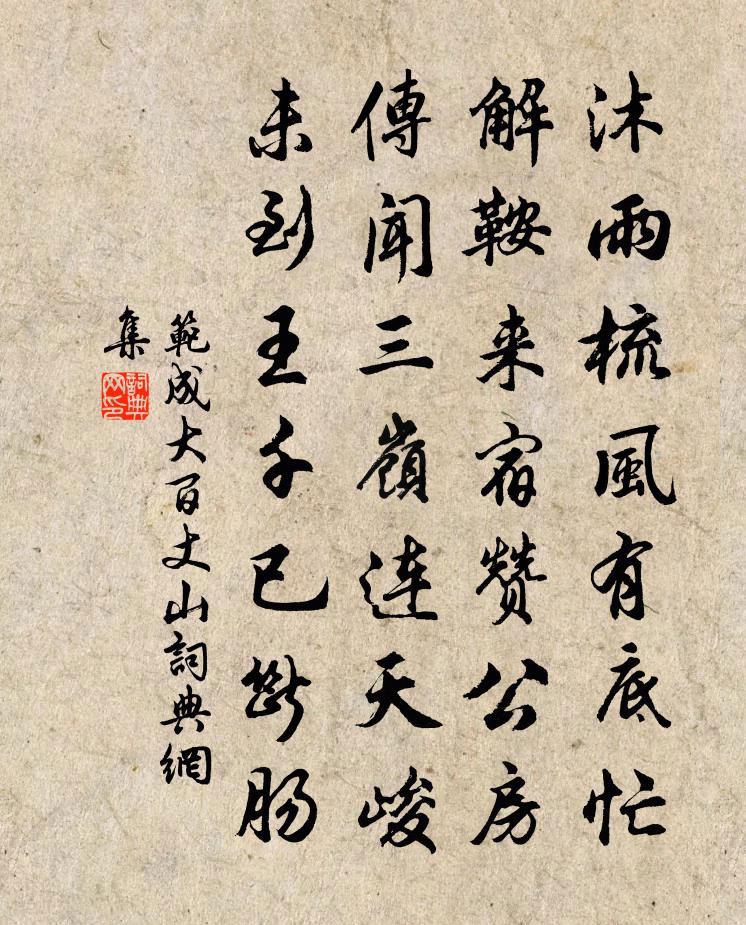 沐雨梳風有底忙
解鞍来宿贊公房
傳聞三嶺連天峻
未到王千已斷腸
範成大百丈山詞典網
集
詞典
网印